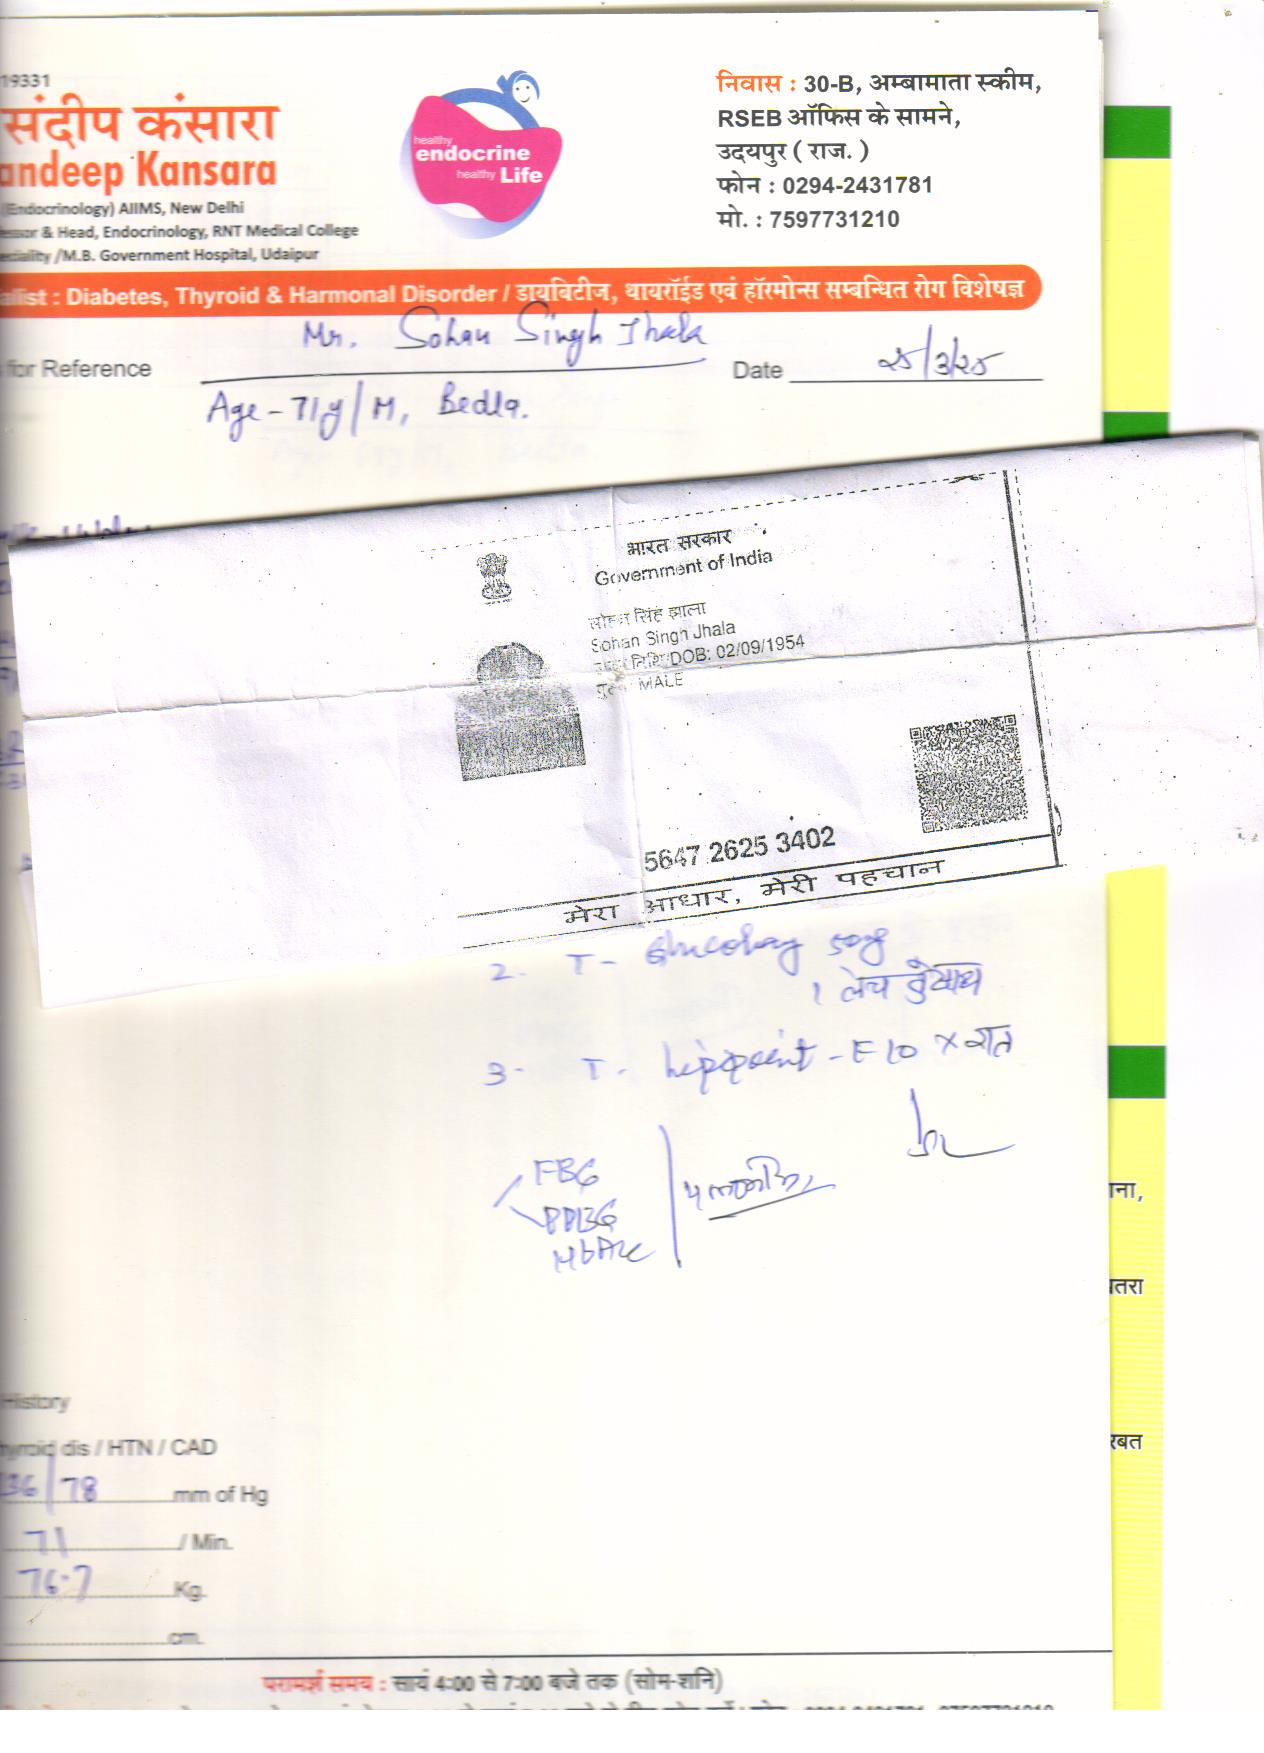 19331
संदीप कंसारा
andeep Kansara
(Endocrinology) AIIMS, New Delhi
essor & Head, Endocrinology, RNT Medical College
eciality /M.B. Government Hospital, Udaipur
healthy
endocrine
healthy Life
निवास : 30-B, अम्बामाता स्कीम,
RSEB ऑफिस के सामने,
उदयपुर ( राज. )
फोन : 0294-2431781
मो. : 7597731210
alist : Diabetes, Thyroid & Harmonal Disorder / डायबिटीज, थायरॉईड एवं हॉरमोन्स सम्बन्धित रोग विशेषज्ञ
Mr. Sohan Singh Jhala
for Reference
Date 25/3/25
Age - 71y/M, Bedla.
भारत सरकार
Government of India
सोहन सिंह झाला
Sohan Singh Jhala
तिथि/DOB: 02/09/1954
MALE
5647 2625 3402
मेरा आधार, मेरी पहचान
2. T- 50mg
1 लंच
3. T- - F 10 x रात
FBG
PPBG
HbA1c
ना,
तरा
रबत
History
hyroid dis / HTN / CAD
136/78 mm of Hg
71 / Min.
76.7 Kg.
cm.
परामर्श समय : सायं 4:00 से 7:00 बजे तक (सोम-शनि)